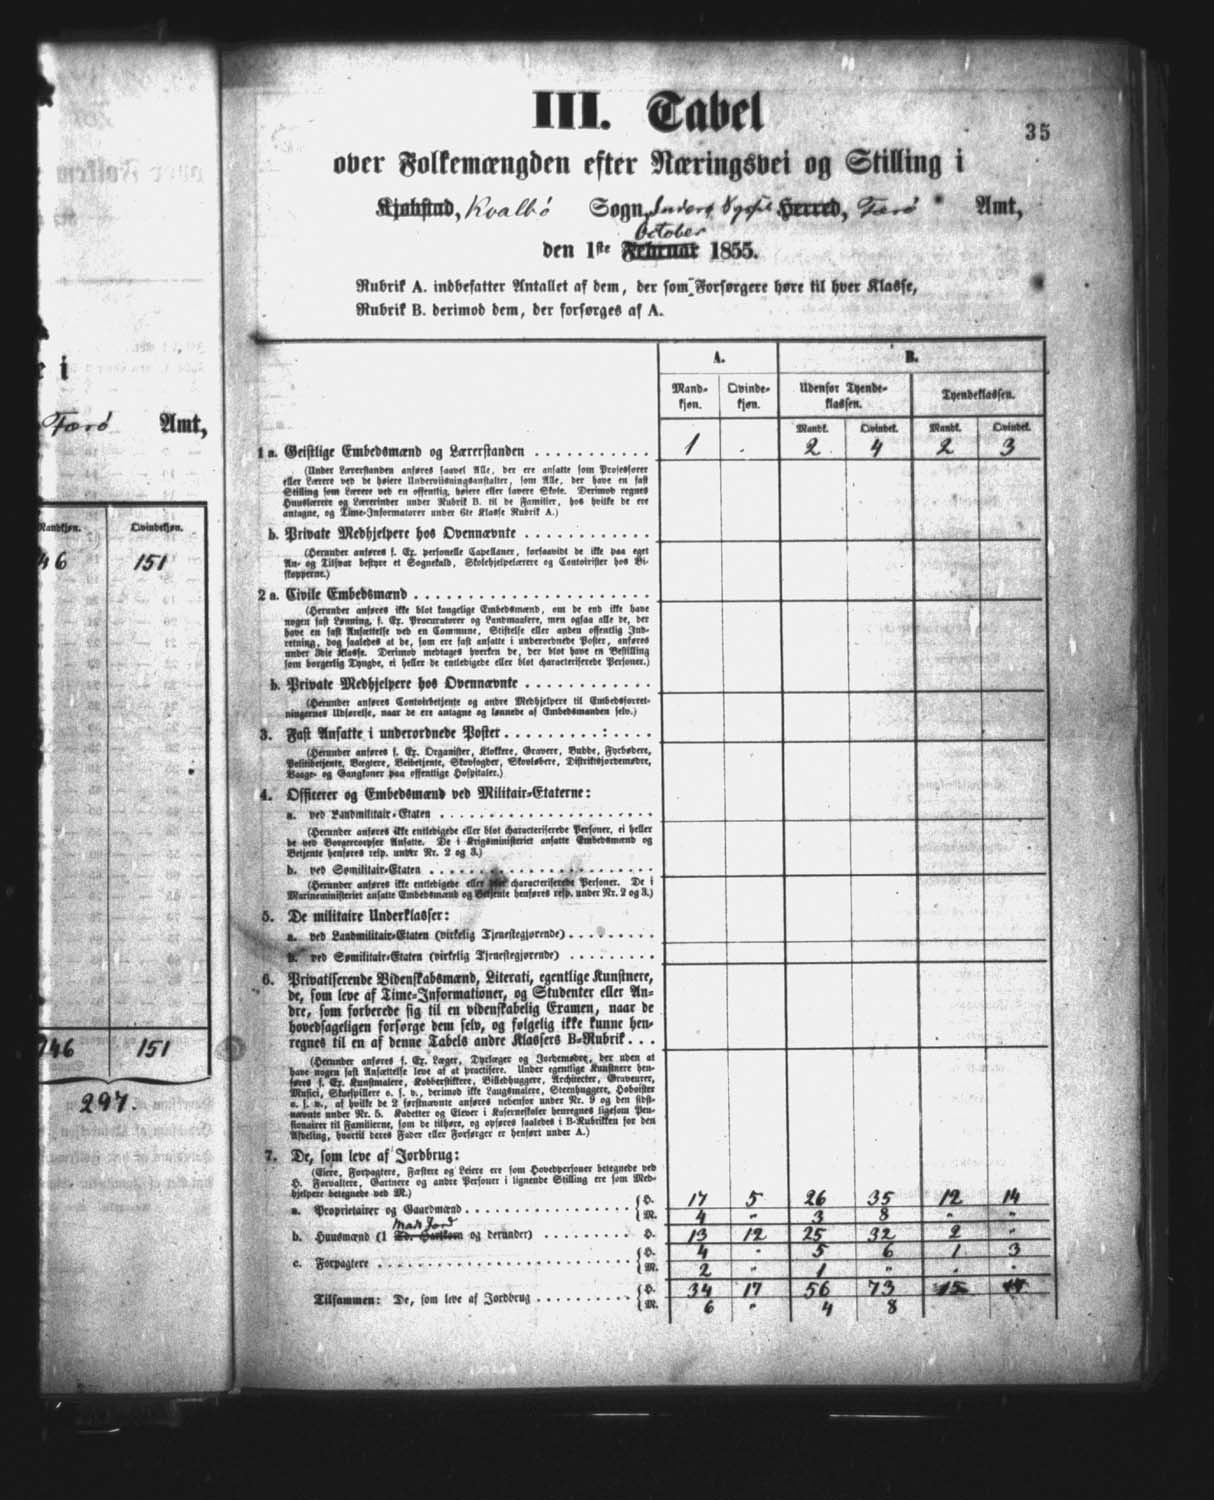 i
Færø Amt,
Mandkjøn. Qvindekjøn.
146 151
146 151
297.
35
III. Tabel
over Folkemængden efter Næringsvei og Stilling i
Kjøbstad, Kvalbø Sogn, Herred, Færø Amt,
October
den 1ste Februar 1855.
Rubrik A. indbefatter Antallet af dem, der som Forsørgere høre til hver Klasse,
Rubrik B. derimod dem, der forsørges af A.
A. B.
Mand- Qvinde- Udenfor Tyende- Tyendeklassen.
kjøn. kjøn. klassen.
Mandk. Qvindek. Mandk. Qvindek.
1 a. Geistlige Embedsmænd og Lærerstanden 1 . 2 4 2 3
(Under Lærerstanden anføres saavel Alle, der ere ansatte som Professorer
eller Lærere ved de høiere Underviisningsanstalter, som Alle, der have en fast
Stilling som Lærere ved en offentlig, høiere eller lavere Skole. Derimod regnes
Huuslærere og Lærerinder under Rubrik B. til de Familier, hos hvilke de ere
antagne, og Time-Informatorer under 6te Klasse Rubrik A.)
b. Private Medhjelpere hos Ovennævnte
(Herunder anføres f. Ex. personelle Capellaner, forsaavidt de ikke paa eget
An- og Tilsvar bestyre et Sognekald, Skolehjelpelærere og Contoirister hos Bi-
skopperne.)
2 a. Civile Embedsmænd
(Herunder anføres ikke blot kongelige Embedsmænd, om de end ikke have
nogen fast Lønning, f. Ex. Procuratorer og Landmaalere, men ogsaa alle de, der
have en fast Ansættelse ved en Commune, Stiftelse eller anden offentlig Ind-
retning, dog saaledes at de, som ere fast ansatte i underordnede Poster, anføres
under 3die Klasse. Derimod medtages hverken de, der blot have en Bestilling
som borgerlig Tyngde, ei heller de entledigede eller blot characteriserede Personer.)
b. Private Medhjelpere hos Ovennævnte
(Herunder anføres Contoirbetjente og andre Medhjelpere til Embedsforret-
ningernes Udførelse, naar de ere antagne og lønnede af Embedsmanden selv.)
3. Fast Ansatte i underordnede Poster
(Herunder anføres f. Ex. Organister, Klokkere, Gravere, Budde, Fyrbødere,
Politibetjente, Vægtere, Veibetjente, Skovfogder, Skovløbere, Districtsjordemødre,
Vaage- og Gangkoner paa offentlige Hospitaler.)
4. Officerer og Embedsmænd ved Militair-Etaterne:
a. ved Landmilitair-Etaten
(Herunder anføres ikke entledigede eller blot characteriserede Personer, ei heller
de ved Borgercorpser Ansatte. De i Krigsministeriet ansatte Embedsmænd og
Betjente henføres resp. under Nr. 2 og 3.)
b. ved Sømilitair-Etaten
(Herunder anføres ikke entledigede eller blot characteriserede Personer. De i
Marineministeriet ansatte Embedsmænd og Betjente henføres resp. under Nr. 2 og 3.)
5. De militaire Underklasser:
a. ved Landmilitair-Etaten (virkelig Tjenestegjørende)
b. ved Sømilitair-Etaten (virkelig Tjenestegjørende)
6. Privatiserende Videnskabsmænd, Literati, egentlige Kunstnere,
de, som leve af Time-Informationer, og Studenter eller An-
dre, som forberede sig til en videnskabelig Examen, naar de
hovedsageligen forsørge dem selv, og følgelig ikke kunne hen-
regnes til en af denne Tabels andre Klassers B-Rubrik
(Herunder anføres f. Ex. Læger, Dyrlæger og Jordemødre, der uden at
have nogen fast Ansættelse leve af at practisere. Under egentlige Kunstnere hen-
føres f. Ex. Kunstmalere, Kobberstikkere, Billedhuggere, Architecter, Graveurer,
Musici, Skuespillere o. s. v., derimod ikke Laugsmalere, Steenhuggere, Hoboister
o. s. v., af hvilke de 2 førstnævnte anføres nedenfor under Nr. 9 og den sidst-
nævnte under Nr. 5. Kadetter og Elever i Kasernestoler henregnes ligesom Pen-
sionairer til Familierne, som de tilhøre, og opføres saaledes i B-Rubrikken for den
Afdeling, hvortil deres Fader eller Forsørger er henført under A.)
7. De, som leve af Jordbrug:
(Eiere, Forpagtere, Fæstere og Leiere ere som Hovedpersoner betegnede ved
H. Forvaltere, Gartnere og andre Personer i lignende Stilling ere som Med-
hjelpere betegnede ved M.)
a. Proprietairer og Gaardmænd H. 17 5 26 35 12 14
M. 4 " 3 8 " "
Mark Jord
b. Huusmænd (1 Tdr. Hartkorn og derunder) H. 13 12 25 32 2 "
c. Forpagtere H. 4 . 5 6 1 3
M. 2 " 1 " . .
Tilsammen: De, som leve af Jordbrug H. 34 17 56 73 15 17
M. 6 " 4 8